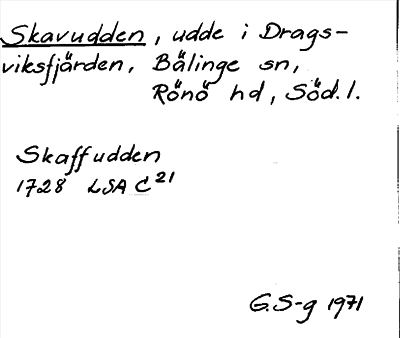 Skavudden, udde i Drags-
viksfjärden, Bälinge sn,
Rönö hd, Söd.l.
Skaffudden
1728 LSA C21
G.S-g 1971